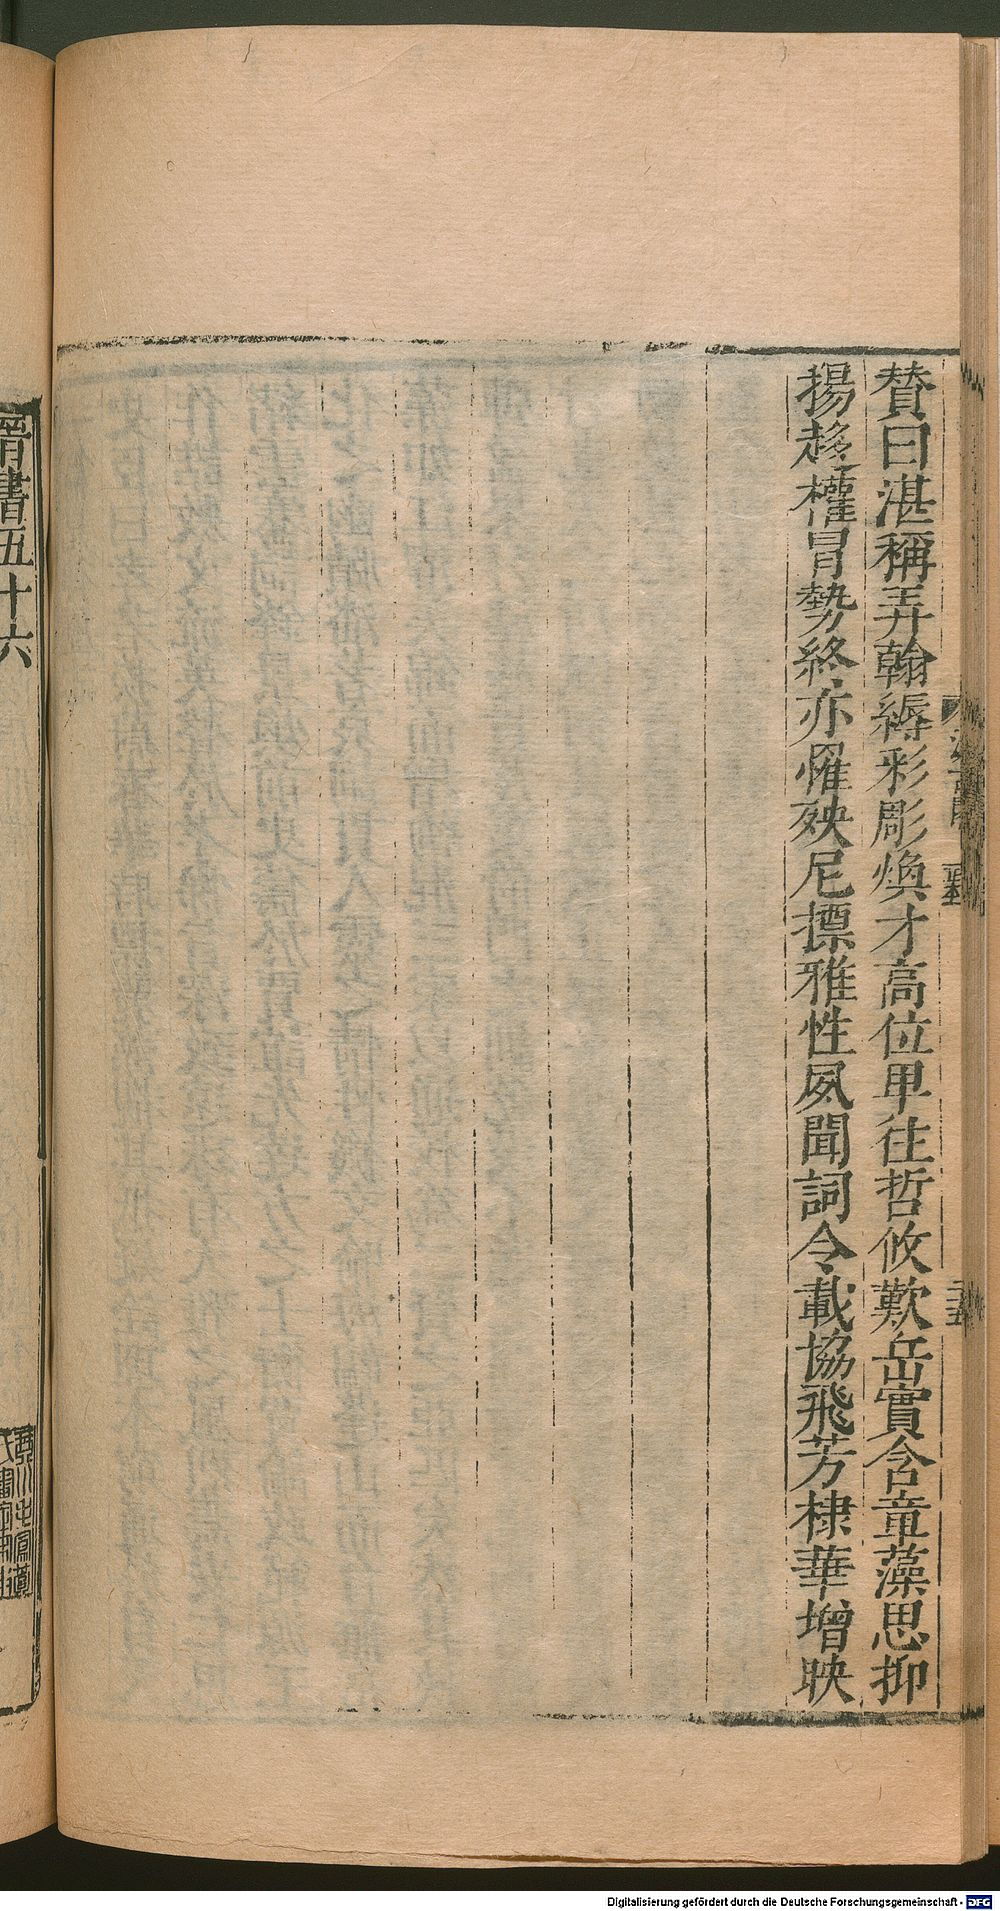 贊曰湛稱弄翰縟彩彫煥才高位卑往哲攸歎岳實含章藻思抑
揚趍權冒勢終亦罹殃尼摽雅性夙聞詞令載協飛芳棣華增映
晉書五十六
Digitalisierung gefördert durch die Deutsche Forschungsgemeinschaft - DFG